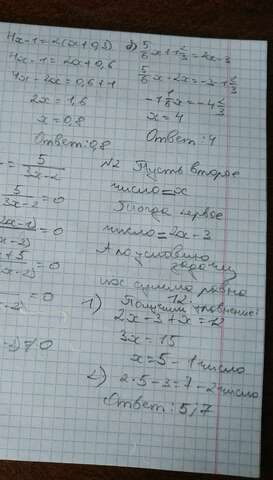 4x-1=2(x+0,3)
4x-1=2x+0,6
4x-2x=0,6+1
2x=1,6
x=0,8
Ответ: 0,8
б) 5/6x+1 2/3=2x-3
5/6x-2x=-3-1 2/3
-1 1/6x=-4 2/3
x=4
Ответ: 4
= 5/(3x-2)
5/(3x-2)=0
=0
=0
=0
≠0
№2 Пусть второе
число=x
Тогда первое
число=2x-3
А по условию
задачи
их сумма равна
12
1) Получим уравнение:
2x-3+x=12
3x=15
x=5-1 число
2) 2·5-3=7-2 число
Ответ: 5;7